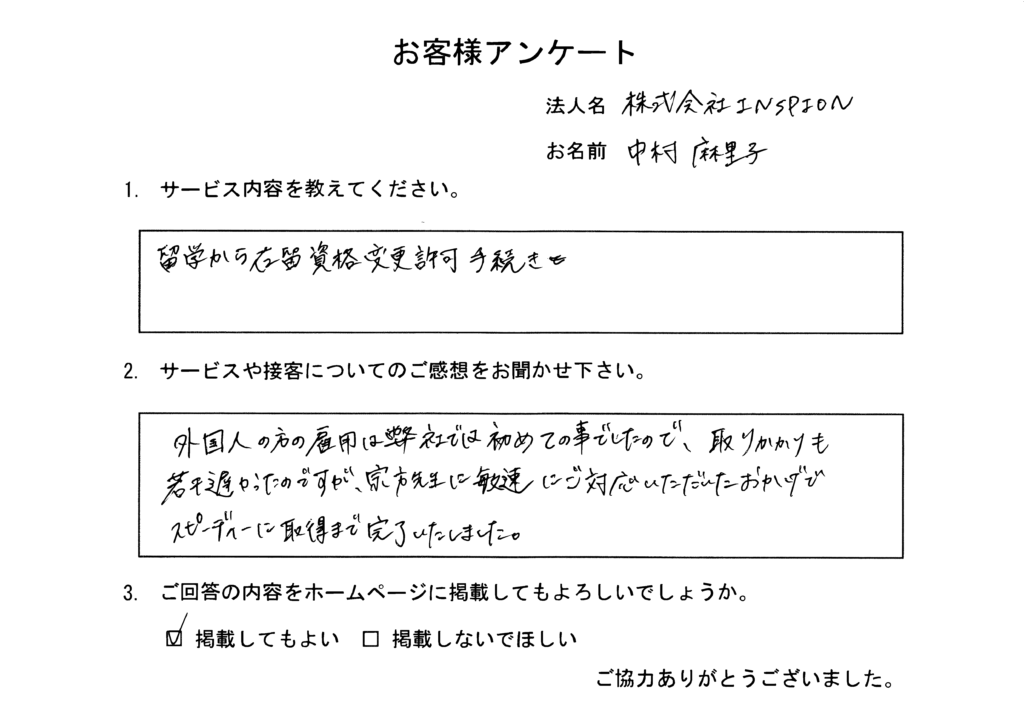 お客様アンケート
法人名 株式会社INSPION
お名前 中村 麻里子
1. サービス内容を教えてください。
留学から在留資格変更許可手続き
2. サービスや接客についてのご感想をお聞かせ下さい。
外国人の方の雇用は弊社では初めての事でしたので、取りかかりも
若干遅かったのですが、宗方先生に敏速にご対応いただいたおかげで
スピーディーに取得まで完了いたしました。
3. ご回答の内容をホームページに掲載してもよろしいでしょうか。
☑ 掲載してもよい □ 掲載しないでほしい
ご協力ありがとうございました。